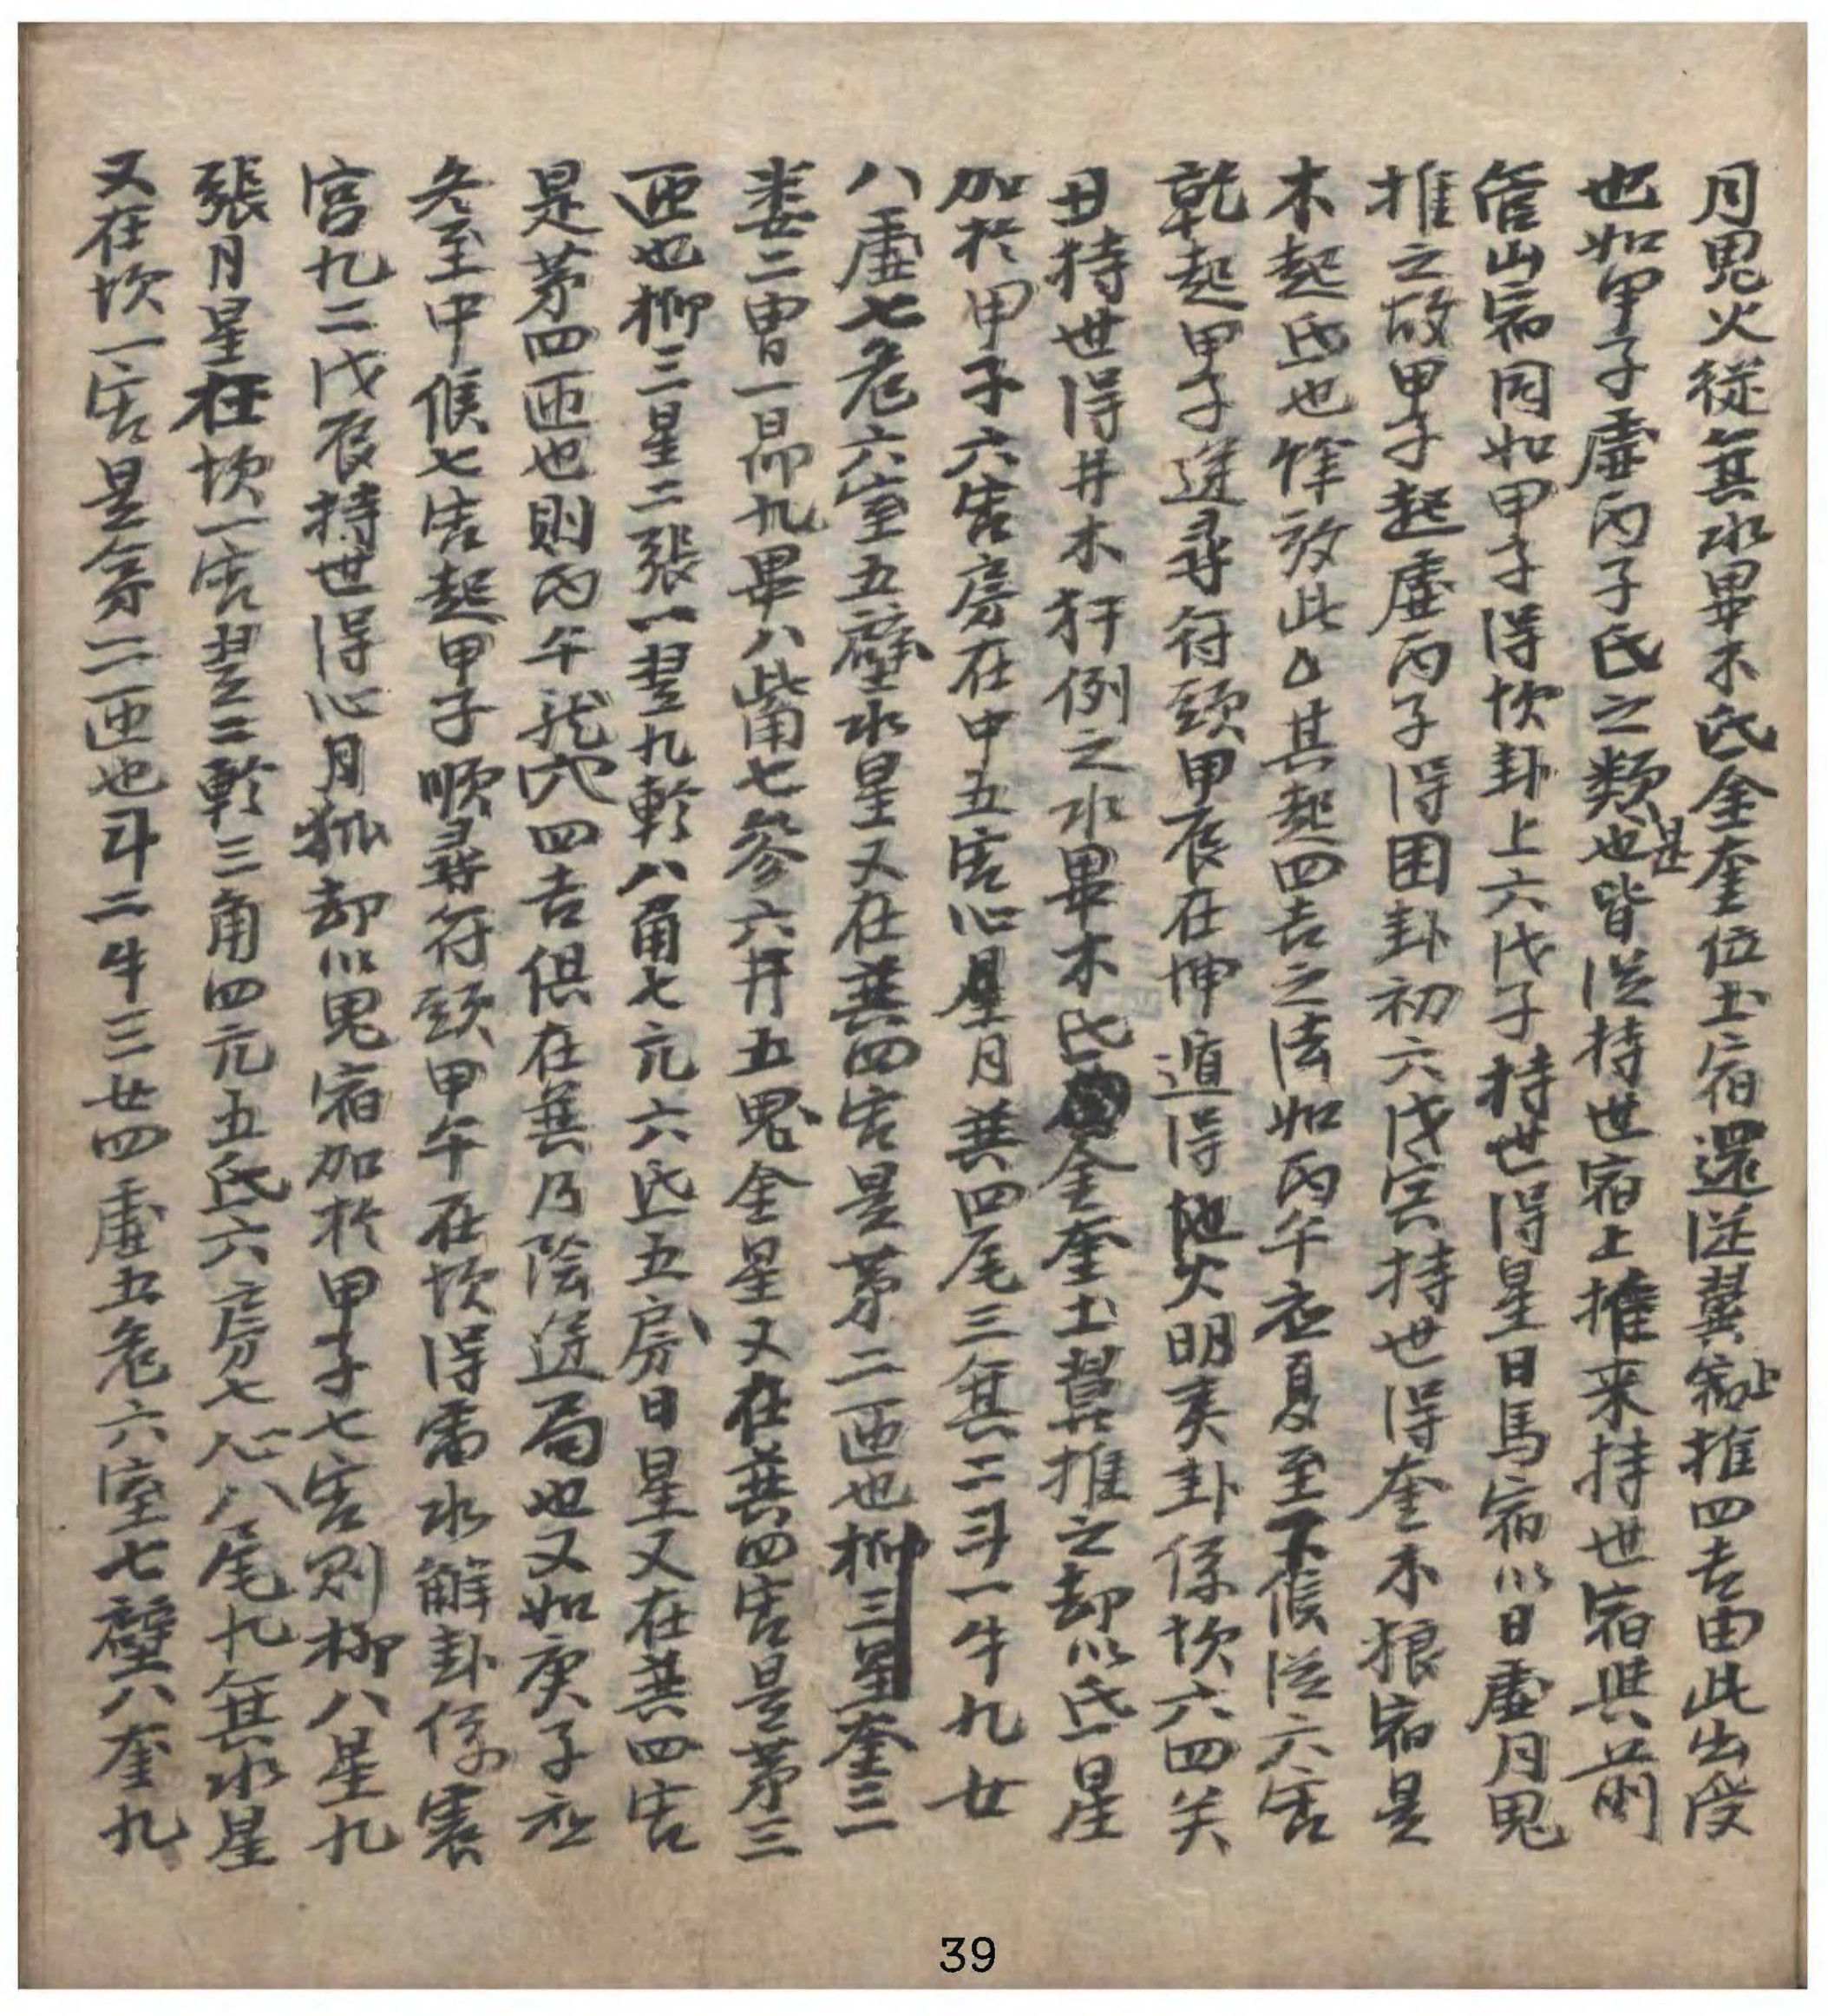 月鬼火從箕水畢木氐金奎位土宿還從翼宿上推四吉由此出没
也如甲子虛丙子氐之類是也皆從持世宿上推来持世宿與前
管山宿同如甲子得坎卦上六戊子持世得星日馬宿以日虛月鬼
推之故甲子起虛丙子得困卦初六戊寅持世得奎木狼宿是
木起氐也馀效此乙其起四吉之法如丙午在夏至下候從六宮
乾起甲子逆尋符頭甲辰在坤遁得地火明夷卦係坎六四癸
丑持世得井木犴例之水畢木氐金奎土箕推之却以氐星
加於甲子六宮房在中五宮心星月巽四尾三箕二斗一牛九女
八虛七危六室五壁水星又在巽四宮是第二匝也奎三
娄二胃一昴九畢八觜七參六井五鬼金星又在巽四宮是第三
匝也柳三星二張一翌九軫八角七亢六氐五房日星又在巽四宮
是第四匝也則丙午龙穴四吉俱在巽乃陰逆局也又如庚子在
冬至中候七宮起甲子順尋符頭甲午在坎得雷水解卦係震
宮九二戊辰持世得心月狐却以鬼宿加於甲子七宮則柳八星九
張月星在坎一宮翌二軫三角四亢五氐六房七心八尾九箕水星
又在坎一宮是第二匝也斗二牛三女四虛五危六室七壁八奎九